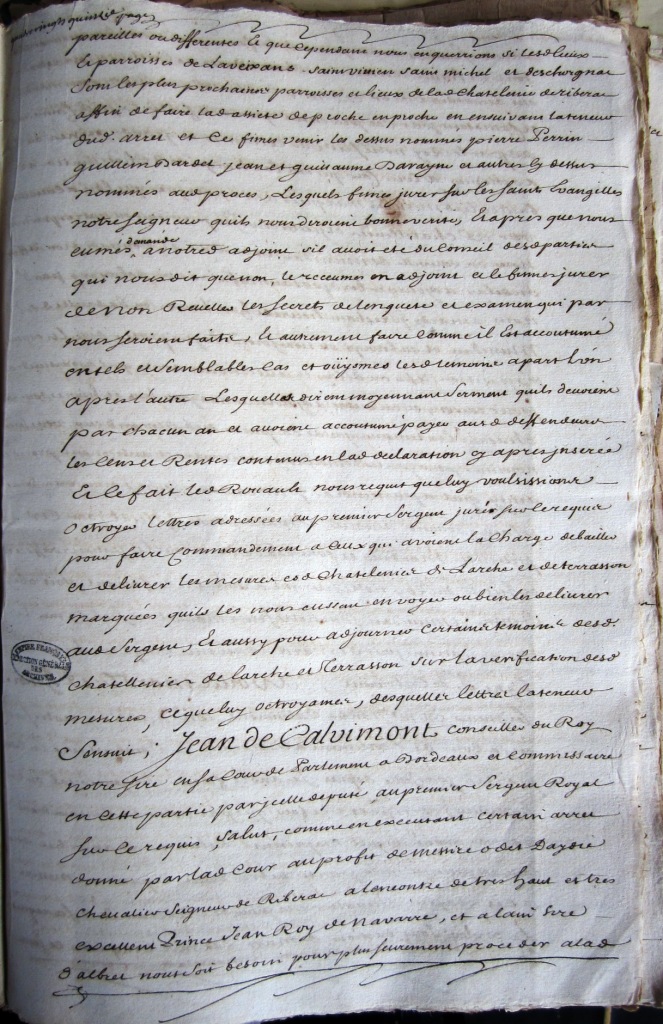 quatre vingts quinzie page
pareilles ou differentes le que cependant nous enquerrions si lesd. lieux
et parroisses de Laveixans saint vincent saint michel et deschourgnac
sont les plus prochaines parroisses et lieux de lad. Chatelenie de riberac
affin de faire lad. assiete de proche en proche en ensuivant la teneur
dud. arret et Ce fimes venir les dessus nommés pierre Perrin
guillem Dardet jean et guillaume Davayne et autres cy dessus
nommés aud. proces, Lesquels fimes jurer sur les saints Evangilles
notre seigneur quils nous diroient bonne verité, Et apres que nous
eumes demande a notred. adjoint sil avoit eté du Conseil desd. parties
qui nous dit que non, le receumes en adjoint et le fimes jurer
de non Reveller les secrets de lenquete et examen qui par
nous seroient faits, et autrement faire Comme il Est accoutumé
en tels et semblables Cas et oüymes lesd. temoins a part l'un
apres l'autre Lesquelles dirent moyennant serment quils devoient
par chacun an et avoient accoutumé payer aud. deffendeur
les Cens et Rentes contenus en lad. declaration cy apres inserée
Et Ce fait led. Rouault nous requit que luy voulsissions
octroyer lettres adressées au premier sergent juré sur Ce requis
pour faire Commandement a Ceux qui avoient la Charge de bailler
et delivrer les mesures esd. Chatelenies de Larche et de terrasson
marquées quils les nous eussent envoyer ou bien les delivrer
aud. Sergent, Et aussy pour adjourner Certains temoins desd.
Chatellenies de larche et Terrasson sur la verification desd.
mesures, Ce que luy octroyames, desquelles lettres la teneur
Sensuit; Jean de Calvimont conseiller du Roy
notre sire en sa Cour de Parlement a Bordeaux et Commissaire
en Cette partie par jcelle deputé au premier Sergent Royal
sur Ce requis, salut, comme en executant certain arret
donné par lad. Cour au profit de messire odet Daydie
chevalier Seigneur de Riberac a lencontre de tres haut et tres
excellent Prince Jean Roy de Navarre, et alain sire
d'albret nous soit besoin pour plus seurement proceder a lad.
EMPIRE FRANÇAIS
DIRECTION GÉNÉRALE
DES
ARCHIVES